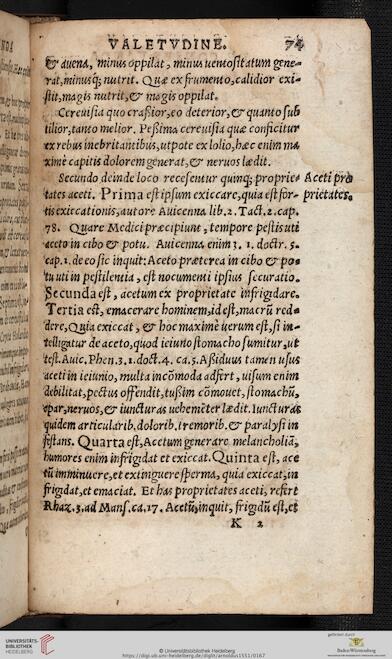 VALETVDINE. 74
& auena, minus oppilat, minus uentositatum gene-
rat, minusq; nutrit. Quæ ex frumento, calidior exi-
stit, magis nutrit, & magis oppilat.
Cereuisia quo craßior, eo deterior, & quanto sub
tilior, tanto melior. Peßima cereuisia quæ conficitur
ex rebus inebriantibus, utpote ex lolio, hæc enim ma
ximè capitis dolorem generat, & neruos lædit.
Secundo deinde loco recesentur quinq; proprie- Aceti pro
tates aceti. Prima est ipsum exiccare, quia est for- prietates.
tis exiccationis, autore Auicenna lib. 2. Tact. 2. cap.
78. Quare Medici præcipiunt, tempore pestis uti
aceto in cibo & potu. Auicenna enim 3. 1. doctr. 5.
cap. 1. de eo sic inquit: Aceto præterea in cibo & po-
tu uti in pestilentia, est nocumenti ipsius securatio.
Secunda est, acetum ex proprietate infrigidare.
Tertia est, emacerare hominem, id est, macrũ red-
dere, Quia exiccat, & hoc maximè uerum est, si in-
telligatur de aceto, quod ieiuno stomacho sumitur, ut
test. Auic. Phen. 3. 1. doct. 4. ca. 5. Aßiduus tamen usus
aceti in ieiunio, multa incõmoda adfert, uisum enim
debilitat, pectus offendit, tußim cõmouet, stomachũ,
epar, neruos, & iuncturas uehemẽter lædit. Iuncturas
quidem articularib. dolorib. tremorib. & paralysi in
festans. Quarta est, Acetum generare melancholiã,
humores enim infrigidat et exiccat. Quinta est, ace
tũ imminuere, et extinguere sperma, quia exiccat, in
frigidat, et emaciat. Et has proprietates aceti, refert
Rhaz. 3. ad Mans. ca. 17. Acetũ, inquit, frigidũ est, et
K 2
UNIVERSITÄTS-
BIBLIOTHEK
HEIDELBERG
© Universitätsbibliothek Heidelberg
https://digi.ub.uni-heidelberg.de/diglit/arnoldus1551/0167
gefördert durch
Baden-Württemberg